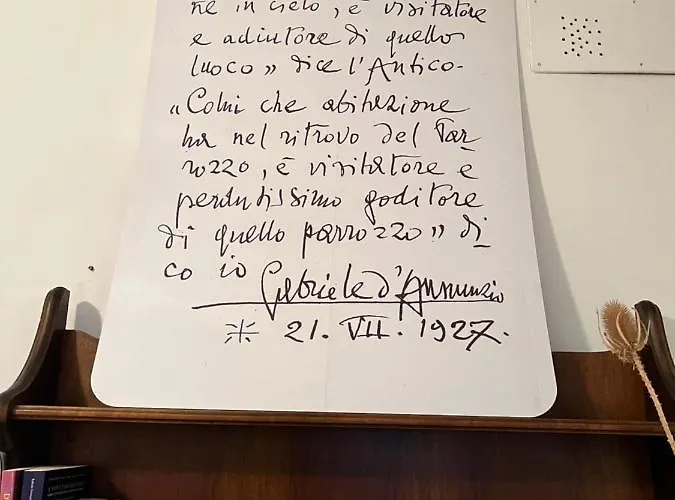 ne in cielo, è visitatore
e adiutore di quello
luoco» dice l'Antico-
«Colui che abitazione
ha nel ritrovo del Par
rozzo, è visitatore e
perdutissimo goditore
di quello parrozzo» di
co io
Gabriele d'Annunzio
21. VII. 1927.